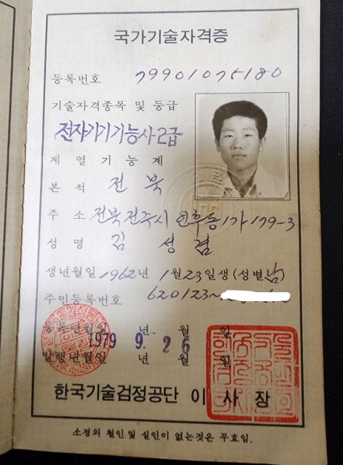 국가기술자격증
등록번호 79901075180
기술자격종목 및 등급
전자기기기능사2급
계열 기능계
본적 전북
주소 전북전주시 인후동1가 179-3
성명 김 성겸
생년월일 1962년 1월 23일생 (성별 남)
주민등록번호 620123~
년월일 1979년 9월 26일
발행년월일 년 월 일
한국기술검정공단 이사장
소정의 철인 및 실인이 없는것은 무효임.